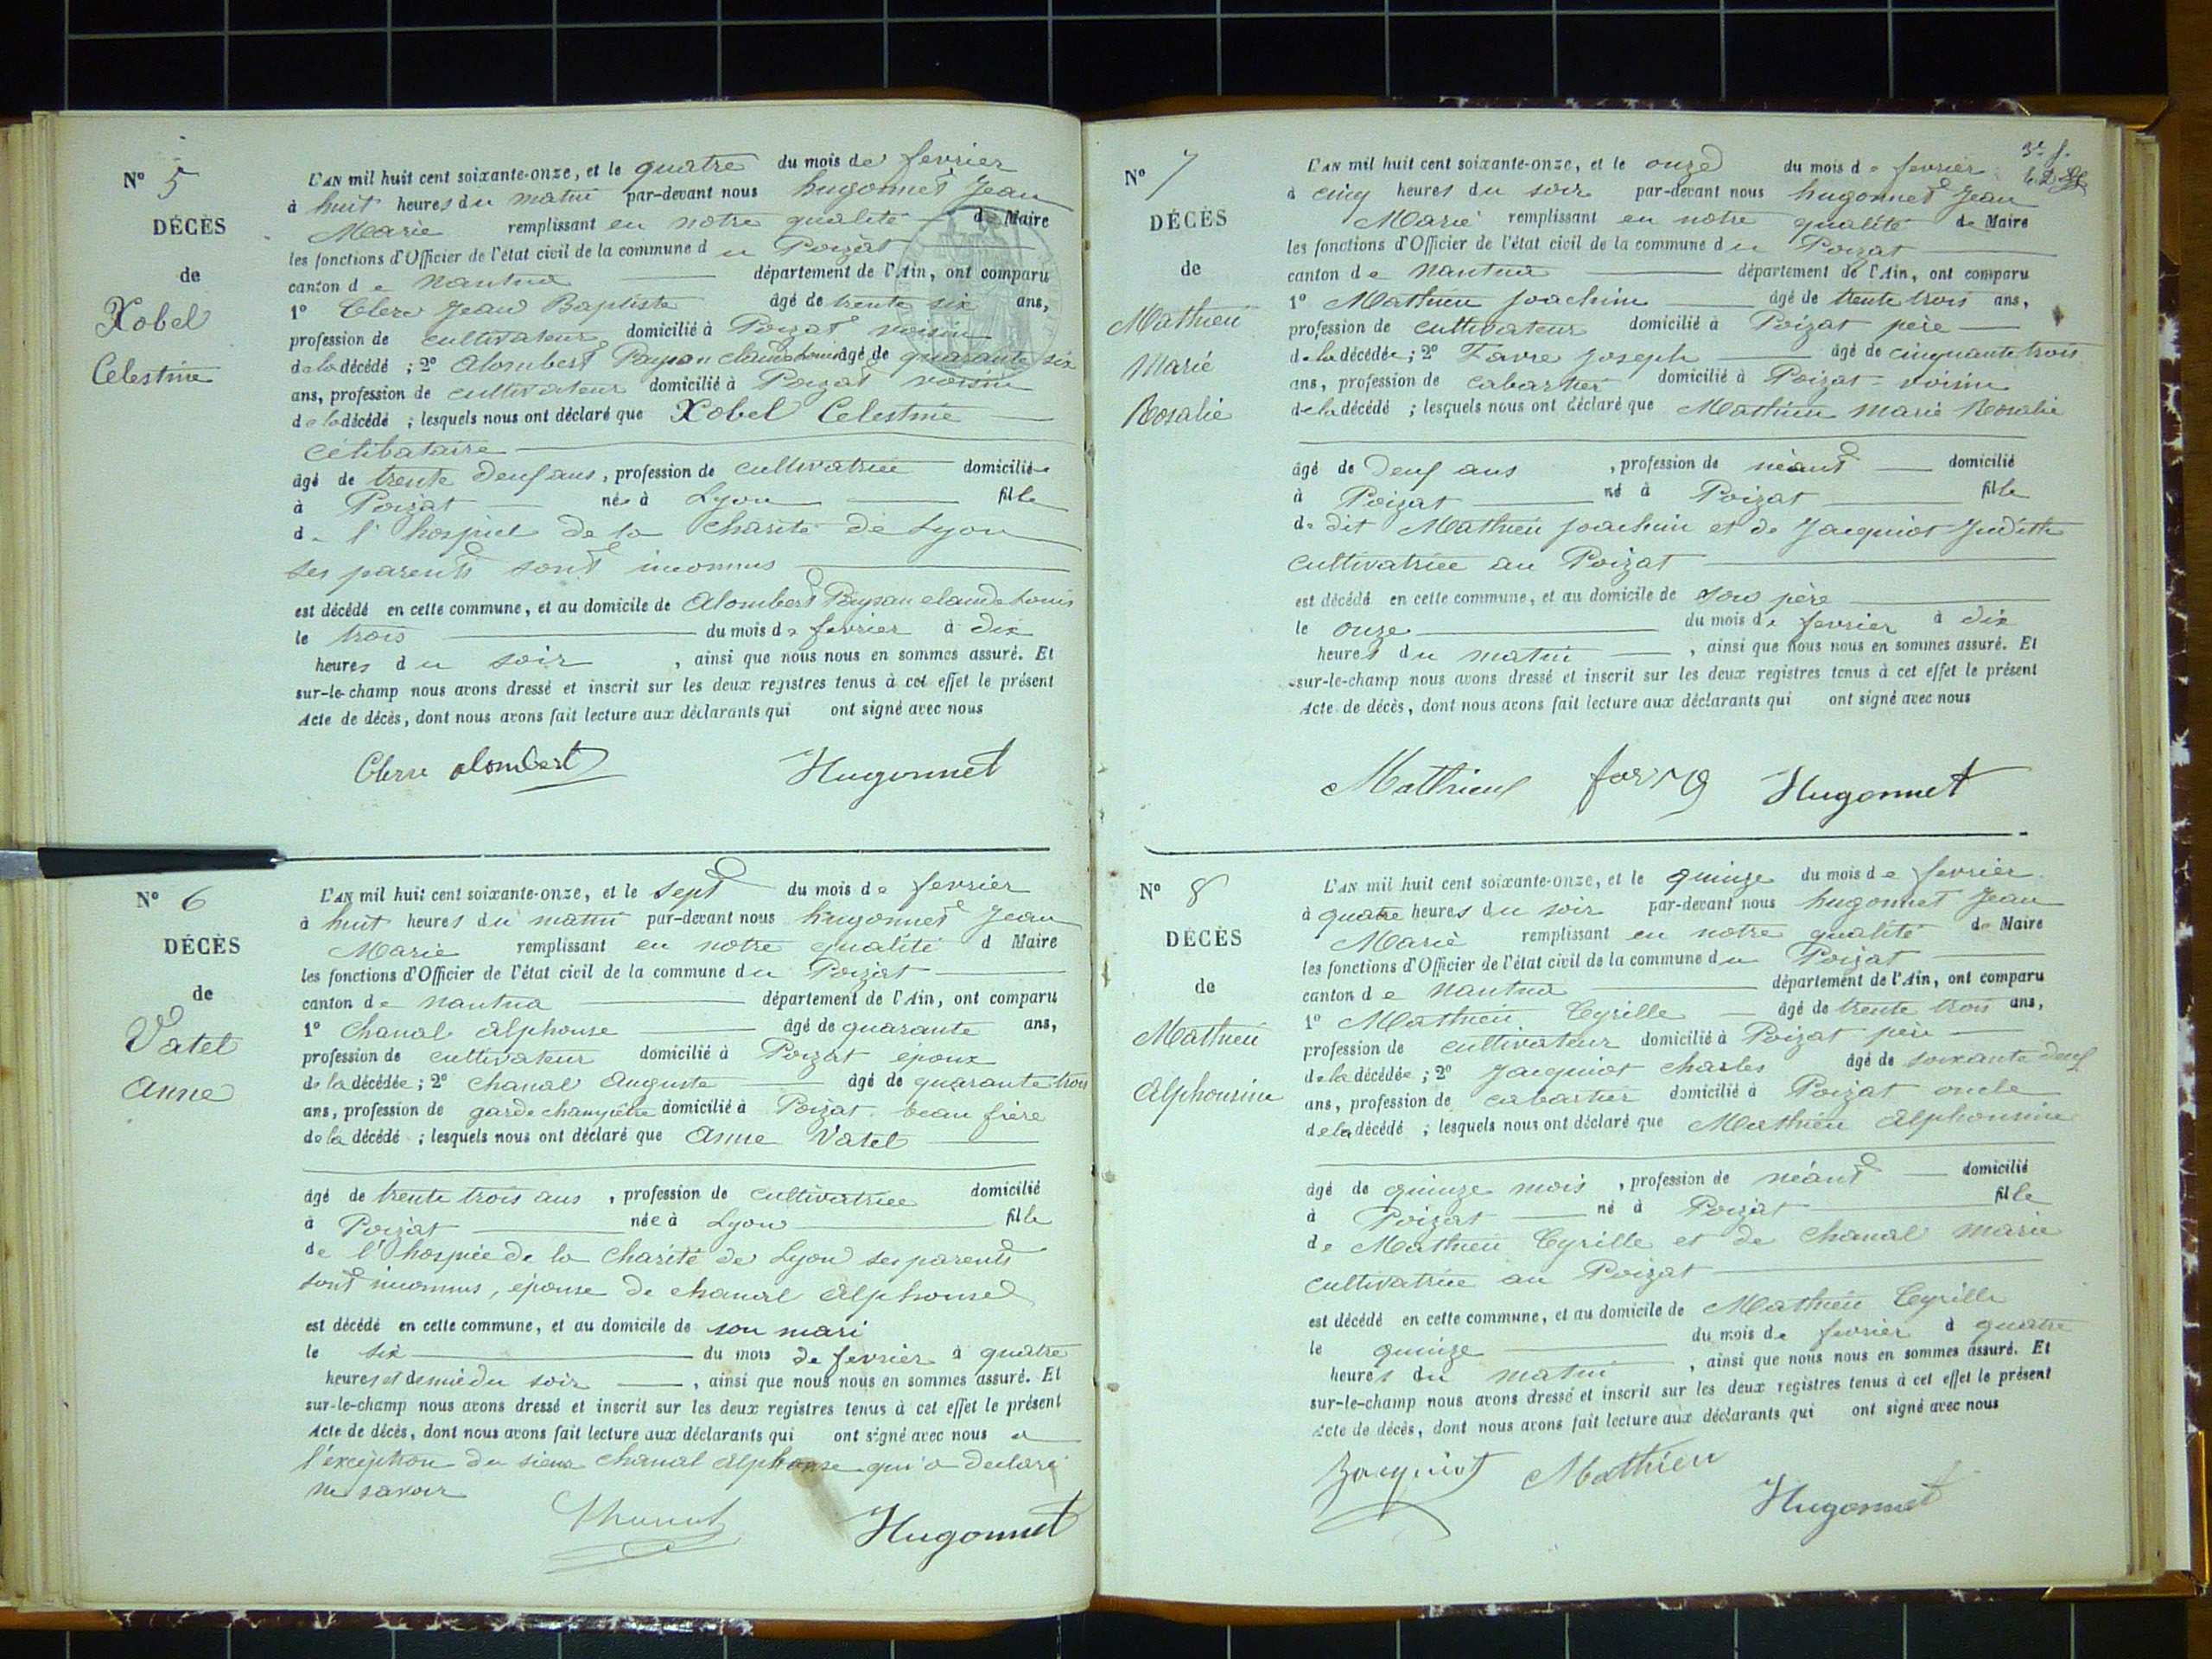 N° 5
DÉCÈS
de
Xobel
Celestine
L'AN mil huit cent soixante-onze, et le quatre du mois de fevrier
à huit heures du matin par-devant nous hugonnet Jean
Marie remplissant en notre qualité de Maire
les fonctions d'Officier de l'état civil de la commune du Poizat
canton de Nantua département de l'Ain, ont comparu
1° Clerc Jean Baptiste âgé de trente six ans,
profession de cultivateur domicilié à Poizat voisin
de la décédé ; 2° Alombert Paysan claude Louis âgé de quarante six
ans, profession de cultivateur domicilié à Poizat voisin
de la décédé ; lesquels nous ont déclaré que Xobel Celestine
célibataire
âgé de trente deuf ans, profession de cultivatrice domiciliée
à Poizat née à Lyon fille
de l'hospice de la Charité de Lyon
ses parents sont inconnus
est décédé en cette commune, et au domicile de Alombert Paysan claude Louis
le trois du mois de fevrier à dix
heures du soir , ainsi que nous nous en sommes assuré. Et
sur-le-champ nous avons dressé et inscrit sur les deux registres tenus à cet effet le présent
Acte de décès, dont nous avons fait lecture aux déclarants qui ont signé avec nous
Clerc alombert Hugonnet
N° 6
DÉCÈS
de
Vatel
Anne
L'AN mil huit cent soixante-onze, et le sept du mois de fevrier
à huit heures du matin par-devant nous hugonnet Jean
Marie remplissant en notre qualité d Maire
les fonctions d'Officier de l'état civil de la commune du Poizat
canton de Nantua département de l'Ain, ont comparu
1° Chanal Alphonse âgé de quarante ans,
profession de cultivateur domicilié à Poizat époux
de la décédée ; 2° Chanal Auguste âgé de quarante trois
ans, profession de garde champêtre domicilié à Poizat beau frère
de la décédé ; lesquels nous ont déclaré que Anne Vatel
âgé de trente trois ans , profession de cultivatrice domicilié
à Poizat née à Lyon fille
de l'hospice de la Charité de Lyon ses parents
sont inconnus, épouse de chanal Alphonse
est décédé en cette commune, et au domicile de son mari
le six du mois de fevrier à quatre
heures et demie du soir , ainsi que nous nous en sommes assuré. Et
sur-le-champ nous avons dressé et inscrit sur les deux registres tenus à cet effet le présent
Acte de décès, dont nous avons fait lecture aux déclarants qui ont signé avec nous a
l'exception du sieur Chanal Alphonse qui a declaré
ne savoir
Chanal Hugonnet
N° 7
DÉCÈS
de
Mathieu
Marie
Rosalie
3e f.
L'AN mil huit cent soixante-onze, et le onze du mois de fevrier
à cinq heures du soir par-devant nous hugonnet Jean
Marie remplissant en notre qualité de Maire
les fonctions d'Officier de l'état civil de la commune du Poizat
canton de Nantua département de l'Ain, ont comparu
1° Mathieu Joachim âgé de trente trois ans,
profession de cultivateur domicilié à Poizat père
de la décédée ; 2° Favre Joseph âgé de cinquante trois
ans, profession de cabartier domicilié à Poizat voisin
de la décédé ; lesquels nous ont déclaré que Mathieu Marie Rosalie
âgé de deuf ans , profession de néant domicilié
à Poizat né à Poizat fille
de dit Mathieu Joachim et de Jacquiot Judith
cultivatrice au Poizat
est décédé en cette commune, et au domicile de son père
le onze du mois de fevrier à dix
heures du matin , ainsi que nous nous en sommes assuré. Et
sur-le-champ nous avons dressé et inscrit sur les deux registres tenus à cet effet le présent
Acte de décès, dont nous avons fait lecture aux déclarants qui ont signé avec nous
Mathieu favre Hugonnet
N° 8
DÉCÈS
de
Mathieu
Alphonsine
L'AN mil huit cent soixante-onze, et le quinze du mois de fevrier
à quatre heures du soir par-devant nous hugonnet Jean
Marie remplissant en notre qualité de Maire
les fonctions d'Officier de l'état civil de la commune du Poizat
canton de Nantua département de l'Ain, ont comparu
1° Mathieu Cyrille âgé de trente trois ans,
profession de cultivateur domicilié à Poizat père
de la décédée ; 2° Jacquiot Charles âgé de soixante deuf
ans, profession de cabartier domicilié à Poizat oncle
de la décédé ; lesquels nous ont déclaré que Mathieu Alphonsine
âgé de quinze mois , profession de néant domicilié
à Poizat né à Poizat fille
de Mathieu Cyrille et de Chanal Marie
cultivatrice au Poizat
est décédé en cette commune, et au domicile de Mathieu Cyrille
le quinze du mois de fevrier à quatre
heures du matin , ainsi que nous nous en sommes assuré. Et
sur-le-champ nous avons dressé et inscrit sur les deux registres tenus à cet effet le présent
Acte de décès, dont nous avons fait lecture aux déclarants qui ont signé avec nous
Jacquiot Mathieu
Hugonnet